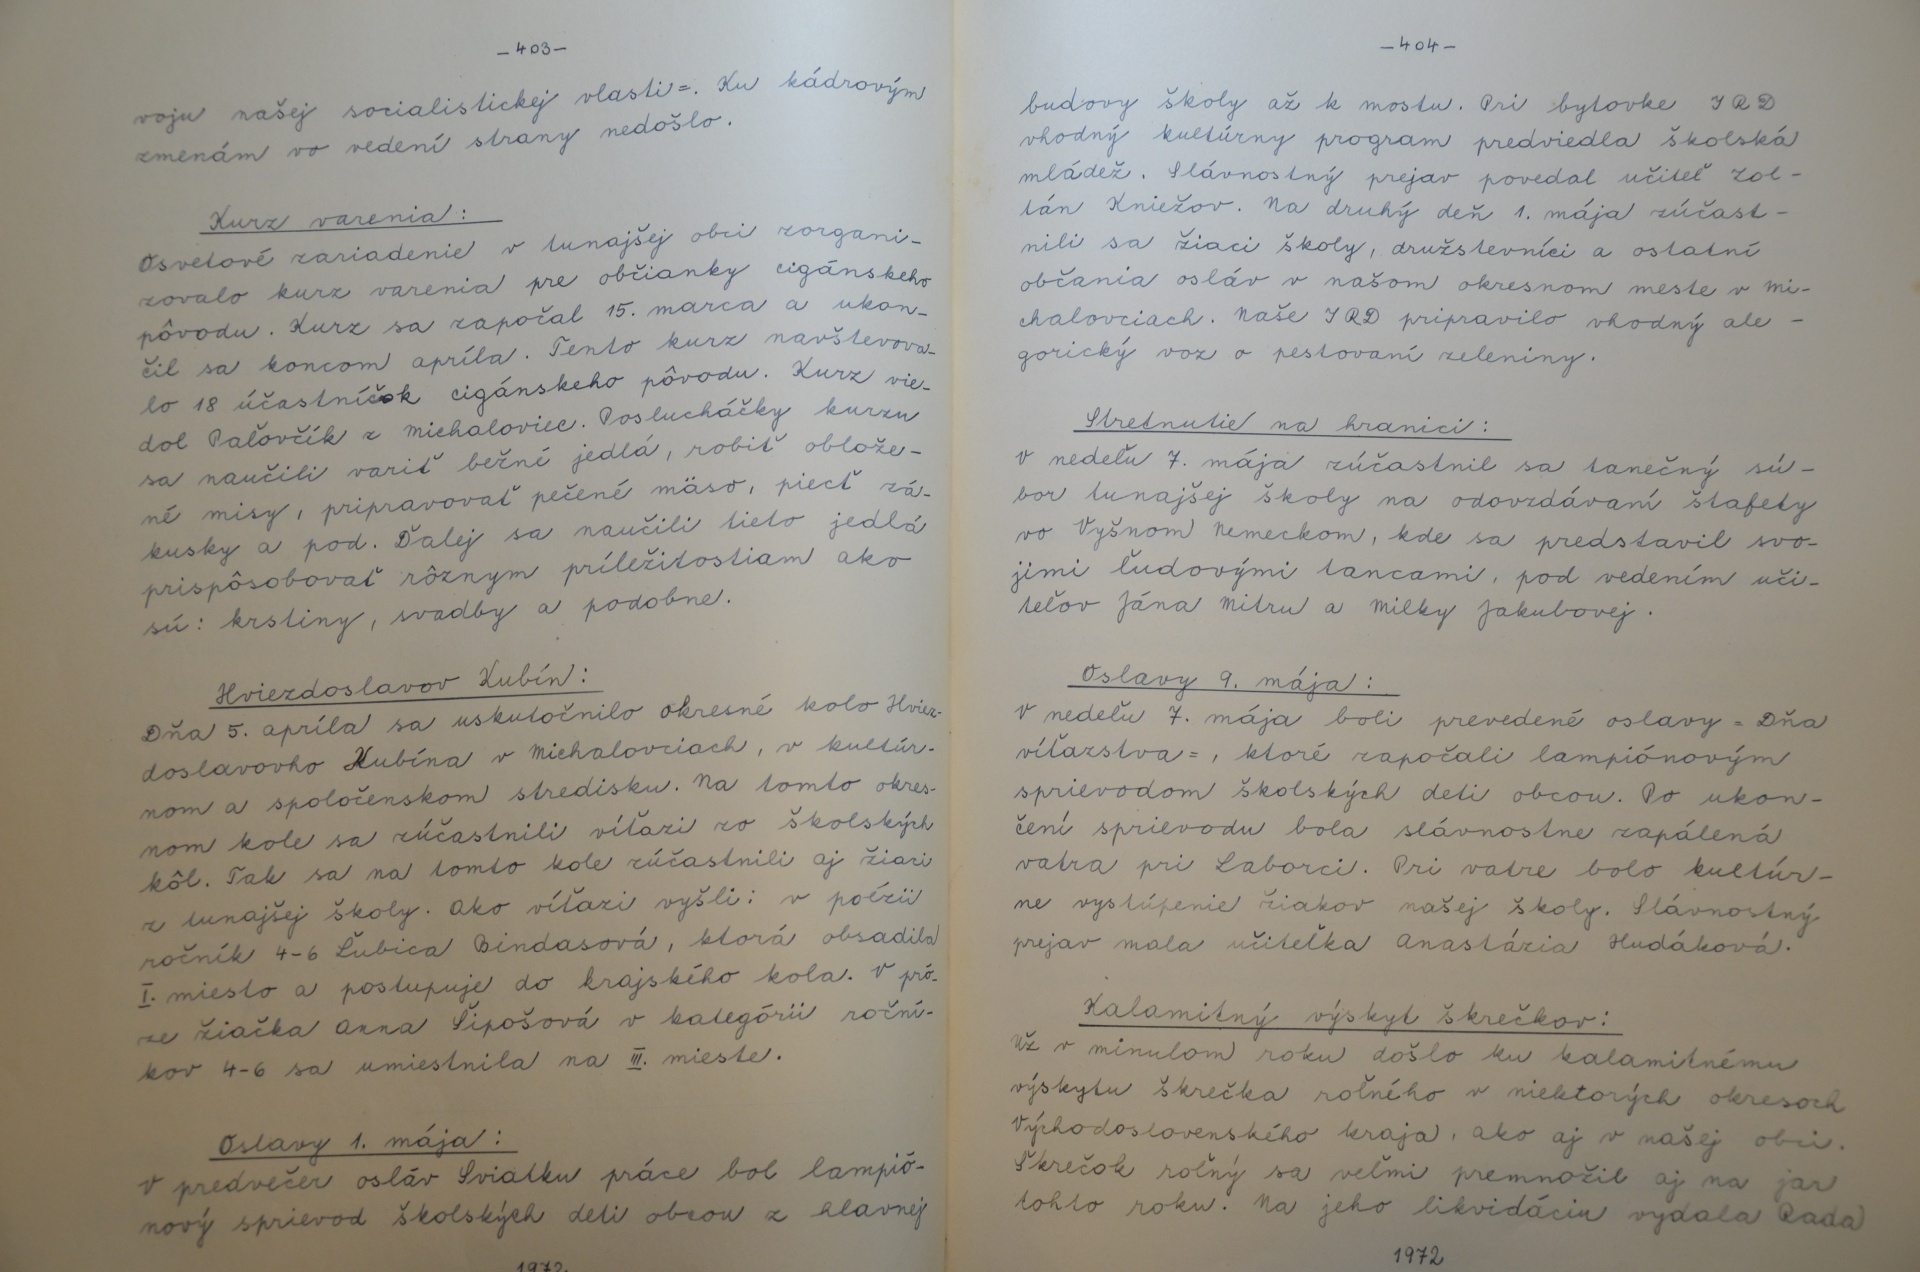 -403-
voju našej socialistickej vlasti=. Ku kádrovým
zmenám vo vedení strany nedošlo.
Kurz varenia:
Osvetové zariadenie v tunajšej obci zorgani-
zovalo kurz varenia pre občianky cigánskeho
pôvodu. Kurz sa započal 15. marca a ukon-
čil sa koncom apríla. Tento kurz navštevova-
lo 18 účastníčok cigánskeho pôvodu. Kurz vie-
dol Paľovčík z Michaloviec. Poslucháčky kurzu
sa naučili variť bežné jedlá, robiť oblože-
né misy, pripravovať pečené mäso, piecť zá-
kusky a pod. Ďalej sa naučili tieto jedlá
prispôsobovať rôznym príležitostiam ako
sú: krstiny, svadby a podobne.
Hviezdoslavov Kubín:
Dňa 5. apríla sa uskutočnilo okresné kolo Hviez-
doslavovho Kubína v Michalovciach, v kultúr-
nom a spoločenskom stredisku. Na tomto okres-
nom kole sa zúčastnili víťazi zo školských
kôl. Tak sa na tomto kole zúčastnili aj žiaci
z tunajšej školy. Ako víťazi vyšli: v poézii
ročník 4-6 Ľubica Bindasová, ktorá obsadila
I. miesto a postupuje do krajského kola. V pró-
ze žiačka Anna Šipošová v kategórii roční-
kov 4-6 sa umiestnila na III. mieste.
Oslavy 1. mája:
V predvečer osláv Sviatku práce bol lampió-
nový sprievod školských deti obcou z hlavnej
1972
-404-
budovy školy až k mostu. Pri bytovke JRD
vhodný kultúrny program predviedla školská
mládež. Slávnostný prejav povedal učiteľ Zol-
tán Kniežov. Na druhý deň 1. mája zúčast-
nili sa žiaci školy, družstevníci a ostatní
občania osláv v našom okresnom meste v Mi-
chalovciach. Naše JRD pripravilo vhodný ale-
gorický voz o pestovaní zeleniny.
Stretnutie na hranici:
V nedeľu 7. mája zúčastnil sa tanečný sú-
bor tunajšej školy na odovzdávaní štafety
vo Vyšnom Nemeckom, kde sa predstavil svo-
jimi ľudovými tancami, pod vedením uči-
teľov Jána Mitru a Milky Jakubovej.
Oslavy 9. mája:
V nedeľu 7. mája boli prevedené oslavy = Dňa
víťazstva=, ktoré započali lampiónovým
sprievodom školských deti obcou. Po ukon-
čení sprievodu bola slávnostne zapálená
vatra pri Laborci. Pri vatre bolo kultúr-
ne vystúpenie žiakov našej školy. Slávnostný
prejav mala učiteľka Anastázia Hudáková.
Kalamitný výskyt škrečkov:
Už v minulom roku došlo ku kalamitnému
výskytu škrečka roľného v niektorých okresoch
Východoslovenského kraja, ako aj v našej obci.
Škrečok roľný sa veľmi premnožil aj na jar
tohto roku. Na jeho likvidáciu vydala Rada
1972